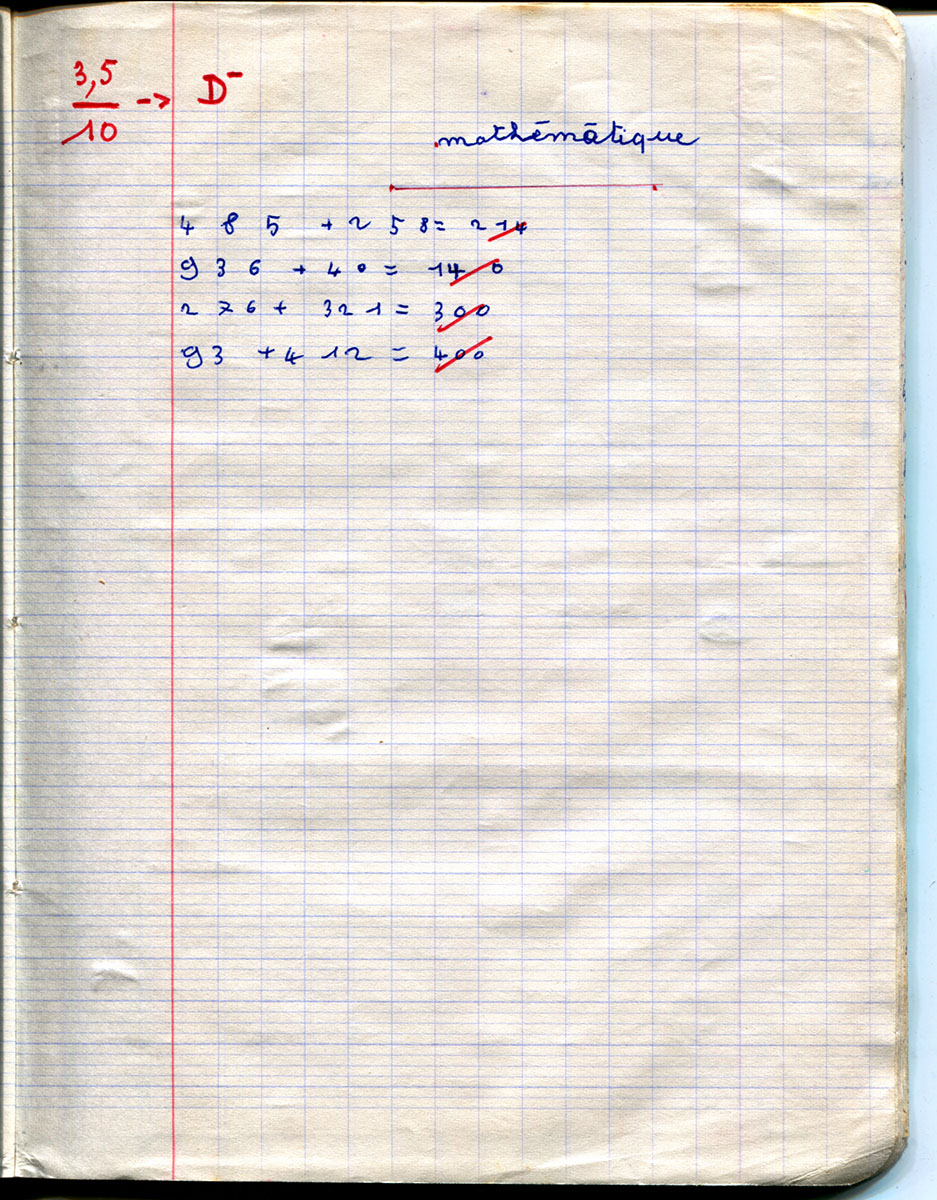 3,5
10 -> D-
mathématique
4 8 5 + 2 5 8 = 2 14
9 3 6 + 4 0 = 14 0
2 7 6 + 3 2 1 = 3 0 0
9 3 + 4 1 2 = 4 0 0